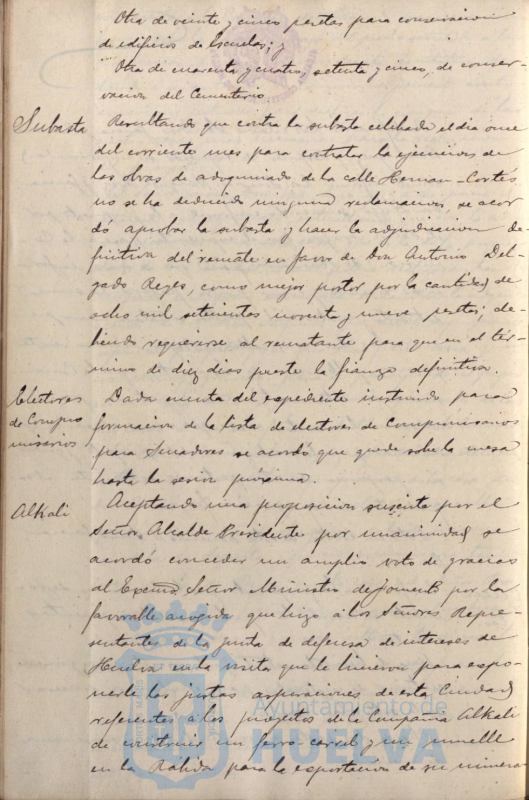 Otra de veinte y cinco pesetas para conservacion
de edificios de Escuelas; y
Otra de cuarenta y cuatro, setenta y cinco, de conser-
vacion del Cementerio.
Subasta
Resultando que contra la subasta celebrada el dia once
del corriente mes para contratar la ejecucion de
las obras de adoquinado de la calle Hernan-Cortés
no se ha deducido ninguna reclamacion, se acor
dó aprobar la subasta y hacer la adjudicacion de-
finitiva del remate en favor de Don Antonio Del-
gado Reyes, como mejor postor por la cantidad de
ocho mil setecientas noventa y nueve pesetas; de-
biendo requerirse al rematante para que en el tér-
mino de diez dias preste la fianza definitiva.
Electores
de Compro
misarios
Dada cuenta del expediente instruido para
formacion de la lista de electores de Compromisarios
para Senadores se acordó que quede sobre la mesa
hasta la sesion próxima.
Alkali
Aceptando una proposicion suscrita por el
Señor Alcalde Presidente por unanimidad se
acordó conceder un amplio voto de gracias
al Excmo Señor Ministro de Fomento por la
favorable acogida que hizo á los Señores Repre-
sentantes de la junta de defensa de intereses de
Huelva en la visita que le hicieron para expo-
nerle las justas aspiraciones de esta Ciudad
referentes á los proyectos de la Compañia Alkali
de construir un ferro-carril y un muelle
en la Rábida para la exportacion de su mineral
Ayuntamiento de
HUELVA